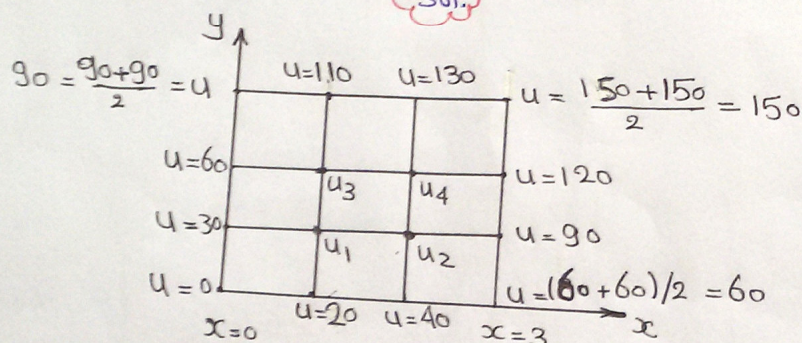 Sol.
y
90 = 90+90/2 = u u=110 u=130 u = 150+150/2 = 150
u=60 u=120
u3 u4
u=30 u=90
u1 u2
u=0 u=(60+60)/2 = 60
x=0 u=20 u=40 x=3 x